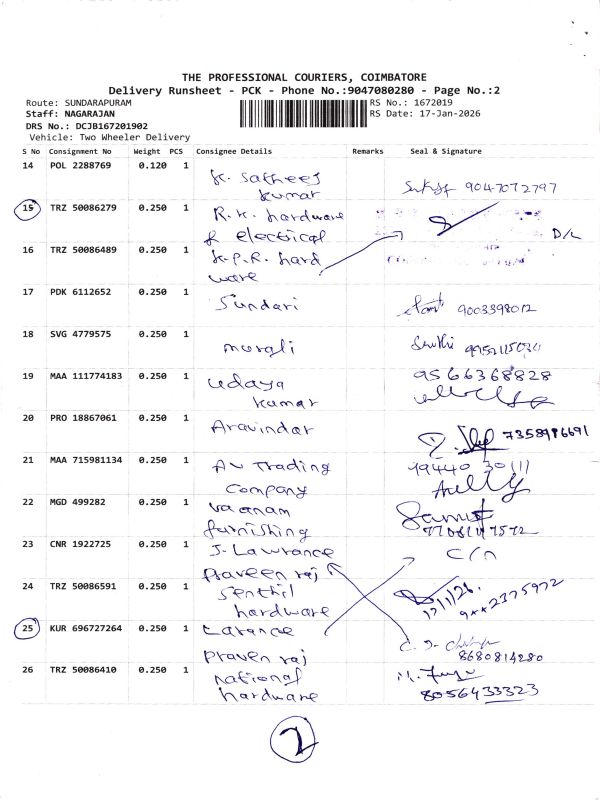 THE PROFESSIONAL COURIERS, COIMBATORE
Delivery Runsheet - PCK - Phone No.:9047080280 - Page No.:2
Route: SUNDARAPURAM RS No.: 1672019
Staff: NAGARAJAN RS Date: 17-Jan-2026
DRS No.: DCJB167201902
Vehicle: Two Wheeler Delivery
S No Consignment No Weight PCS Consignee Details Remarks Seal & Signature
14 POL 2288769 0.120 1
K. Satheesh
Kumar 9047072797
15 TRZ 50086279 0.250 1 R.K. hardware
& electrical D/L
16 TRZ 50086489 0.250 1 K.P.R. hard
ware
17 PDK 6112652 0.250 1
Sundari 9003398012
18 SVG 4779575 0.250 1
murali
19 MAA 111774183 0.250 1 Udaya 9566368828
Kumar
20 PRO 18867061 0.250 1
Aravindar
21 MAA 715981134 0.250 1 AV Trading
Company
22 MGD 499282 0.250 1 Vaanam
furnishing
23 CNR 1922725 0.250 1 J. Lawrance C/n
Praveen raj
24 TRZ 50086591 0.250 1 Senthil 17/1/26.
hardware
25 KUR 696727264 0.250 1 Larance
Praven raj 8680814280
26 TRZ 50086410 0.250 1 national
hardware 8056433323
2